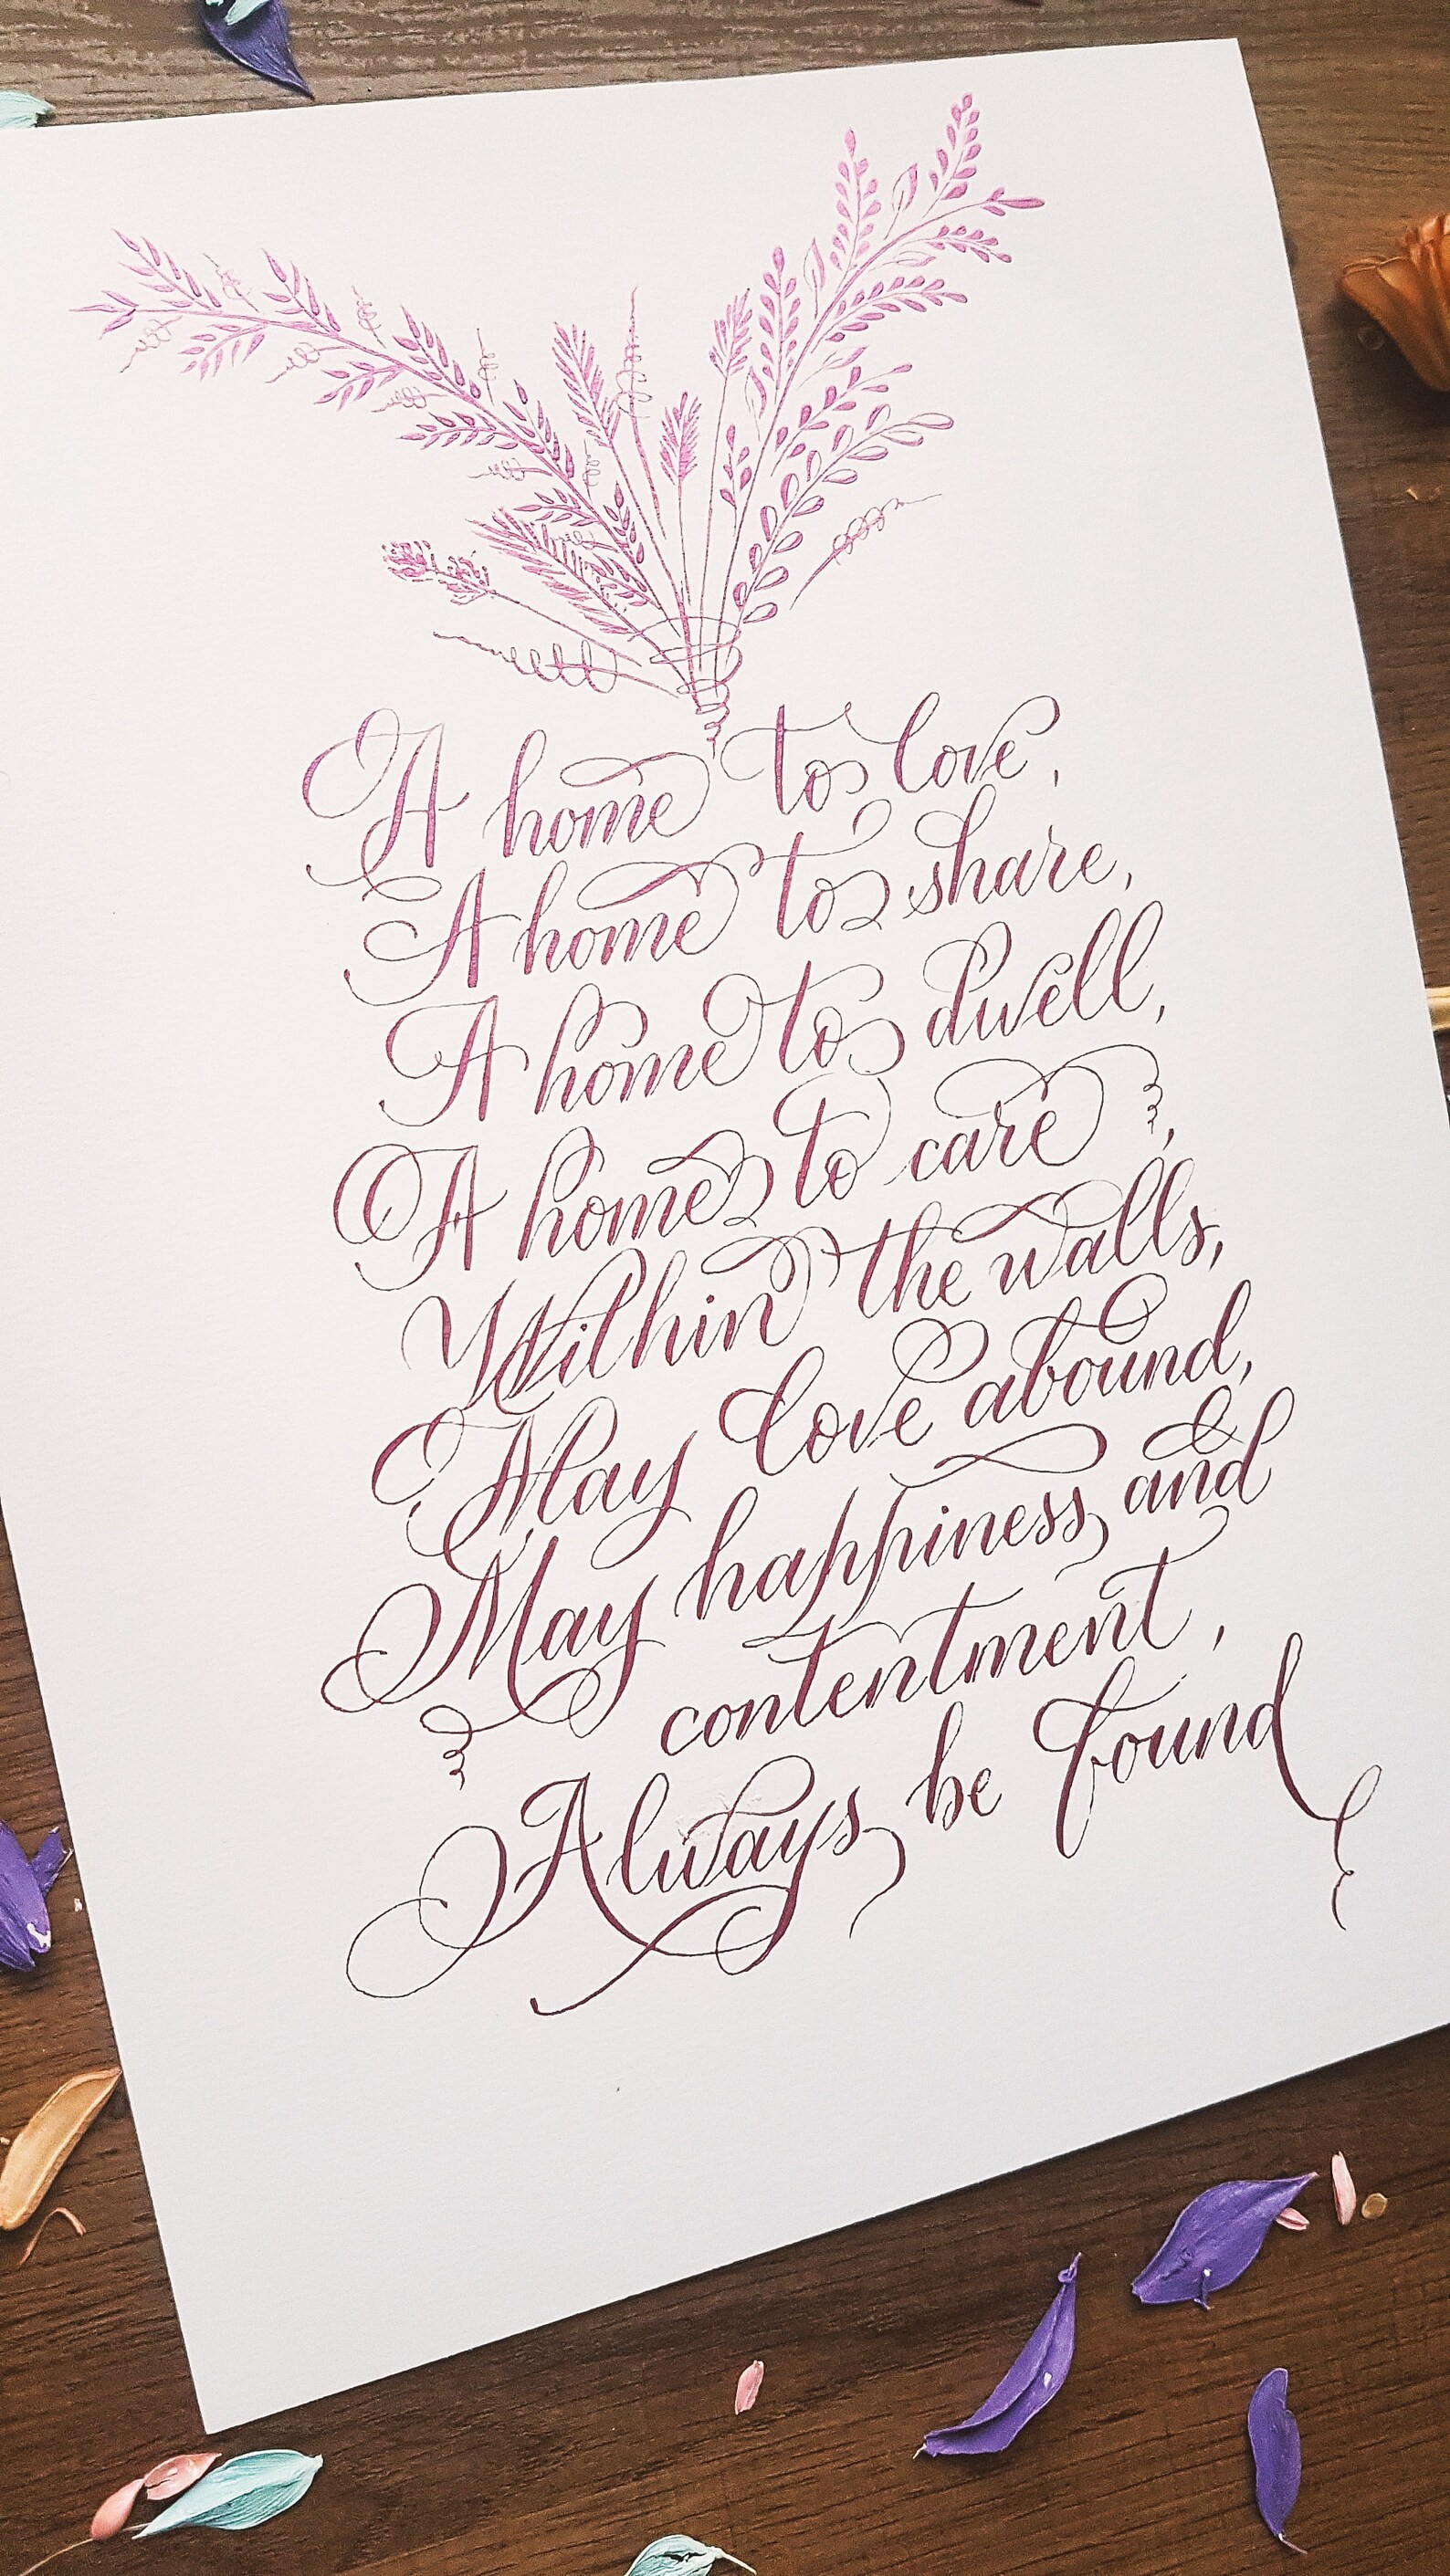 A home to love,
A home to share,
A home to dwell,
A home to care,
Within the walls,
May love abound,
May happiness and
contentment,
Always be found